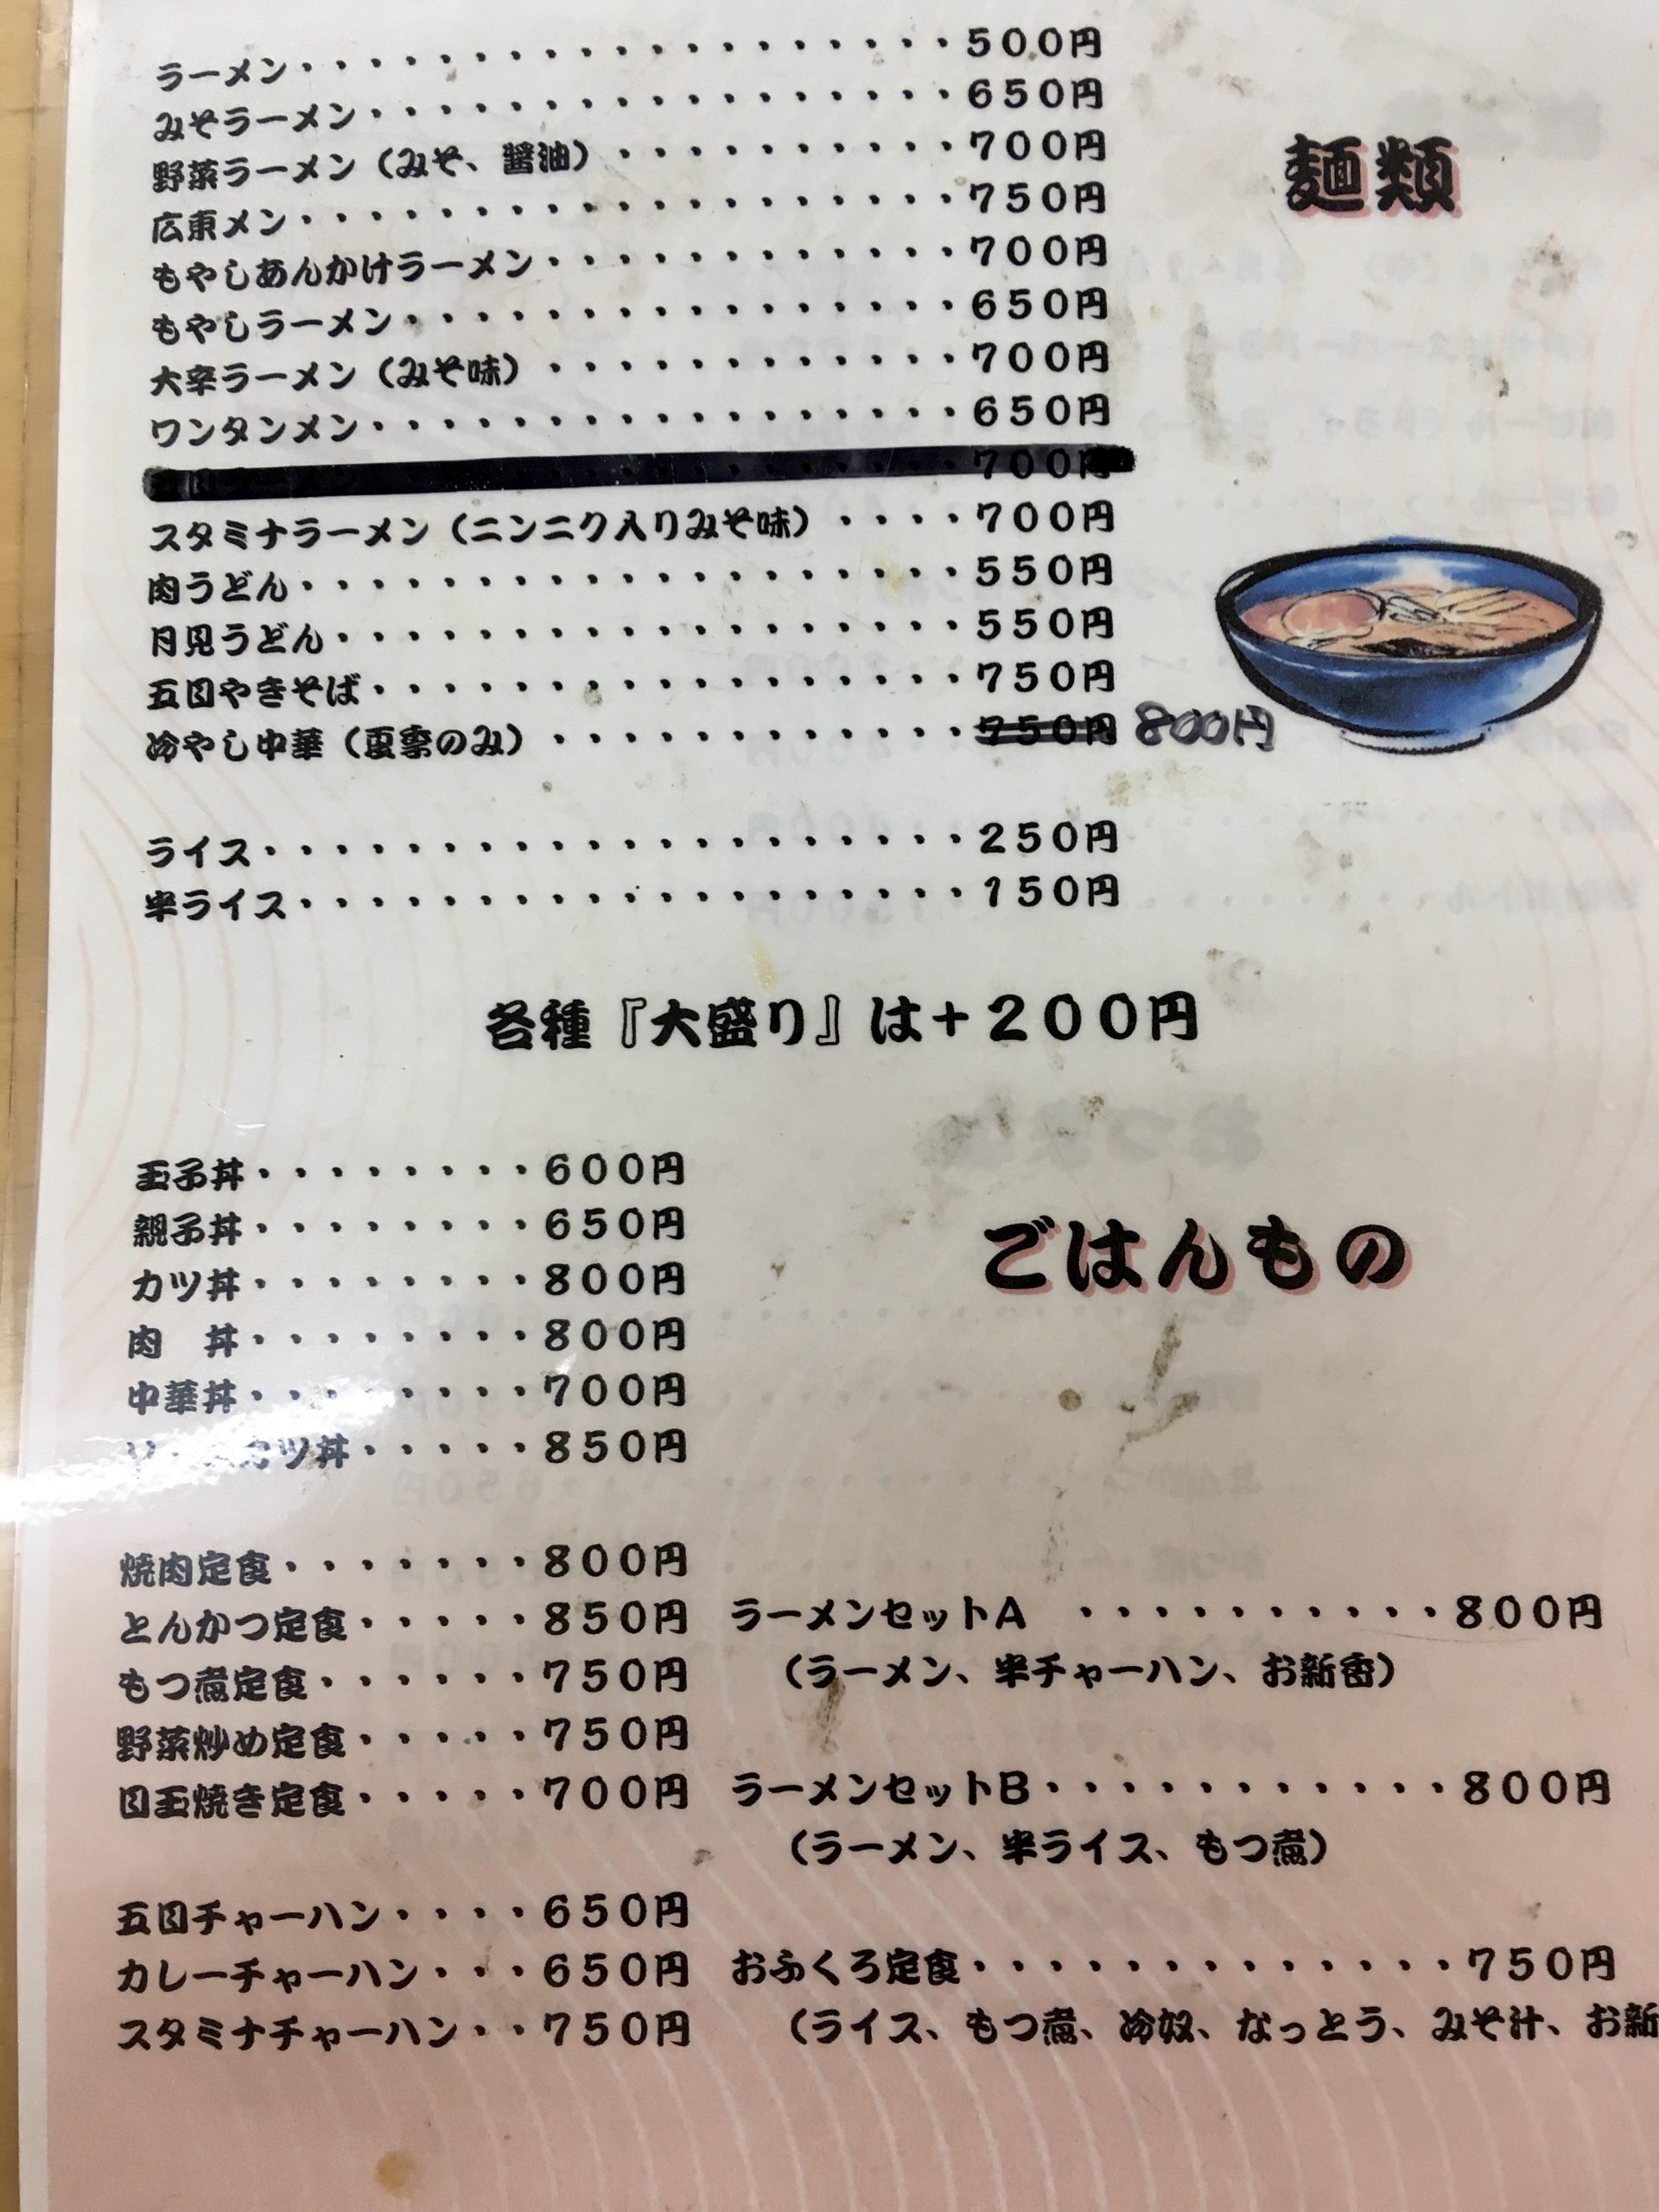 ラーメン・・・・・・・・・・・・・・・・・・・500円
みそラーメン・・・・・・・・・・・・・・・・・650円
野菜ラーメン（みそ、醤油）・・・・・・・・・・700円
広東メン・・・・・・・・・・・・・・・・・・・750円
もやしあんかけラーメン・・・・・・・・・・・・700円
もやしラーメン・・・・・・・・・・・・・・・・650円
大辛ラーメン（みそ味）・・・・・・・・・・・・700円
ワンタンメン・・・・・・・・・・・・・・・・・650円
700円
スタミナラーメン（ニンニク入りみそ味）・・・・700円
肉うどん・・・・・・・・・・・・・・・・・・・550円
月見うどん・・・・・・・・・・・・・・・・・・550円
五目やきそば・・・・・・・・・・・・・・・・・750円
冷やし中華（夏季のみ）・・・・・・・・・・・・750円 800円
麺類
ライス・・・・・・・・・・・・・・・・・・・・250円
半ライス・・・・・・・・・・・・・・・・・・・150円
各種『大盛り』は+200円
ごはんもの
玉子丼・・・・・・・・600円
親子丼・・・・・・・・650円
カツ丼・・・・・・・・800円
肉　丼・・・・・・・・800円
中華丼・・・・・・・・700円
カツ丼・・・・・850円
焼肉定食・・・・・・・800円
とんかつ定食・・・・・850円
もつ煮定食・・・・・・750円
野菜炒め定食・・・・・750円
目玉焼き定食・・・・・700円
五目チャーハン・・・・650円
カレーチャーハン・・・650円
スタミナチャーハン・・750円
ラーメンセットA　・・・・・・・・・・800円
（ラーメン、半チャーハン、お新香）
ラーメンセットB・・・・・・・・・・・800円
（ラーメン、半ライス、もつ煮）
おふくろ定食・・・・・・・・・・・・・750円
（ライス、もつ煮、冷奴、なっとう、みそ汁、お新